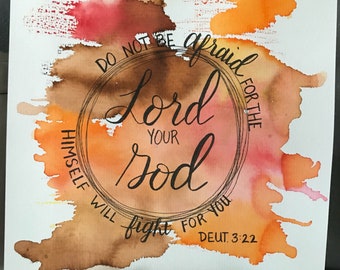 DO NOT BE afraid FOR THE
Lord
YOUR
God
HIMSELF WILL fight FOR YOU
DEUT. 3:22